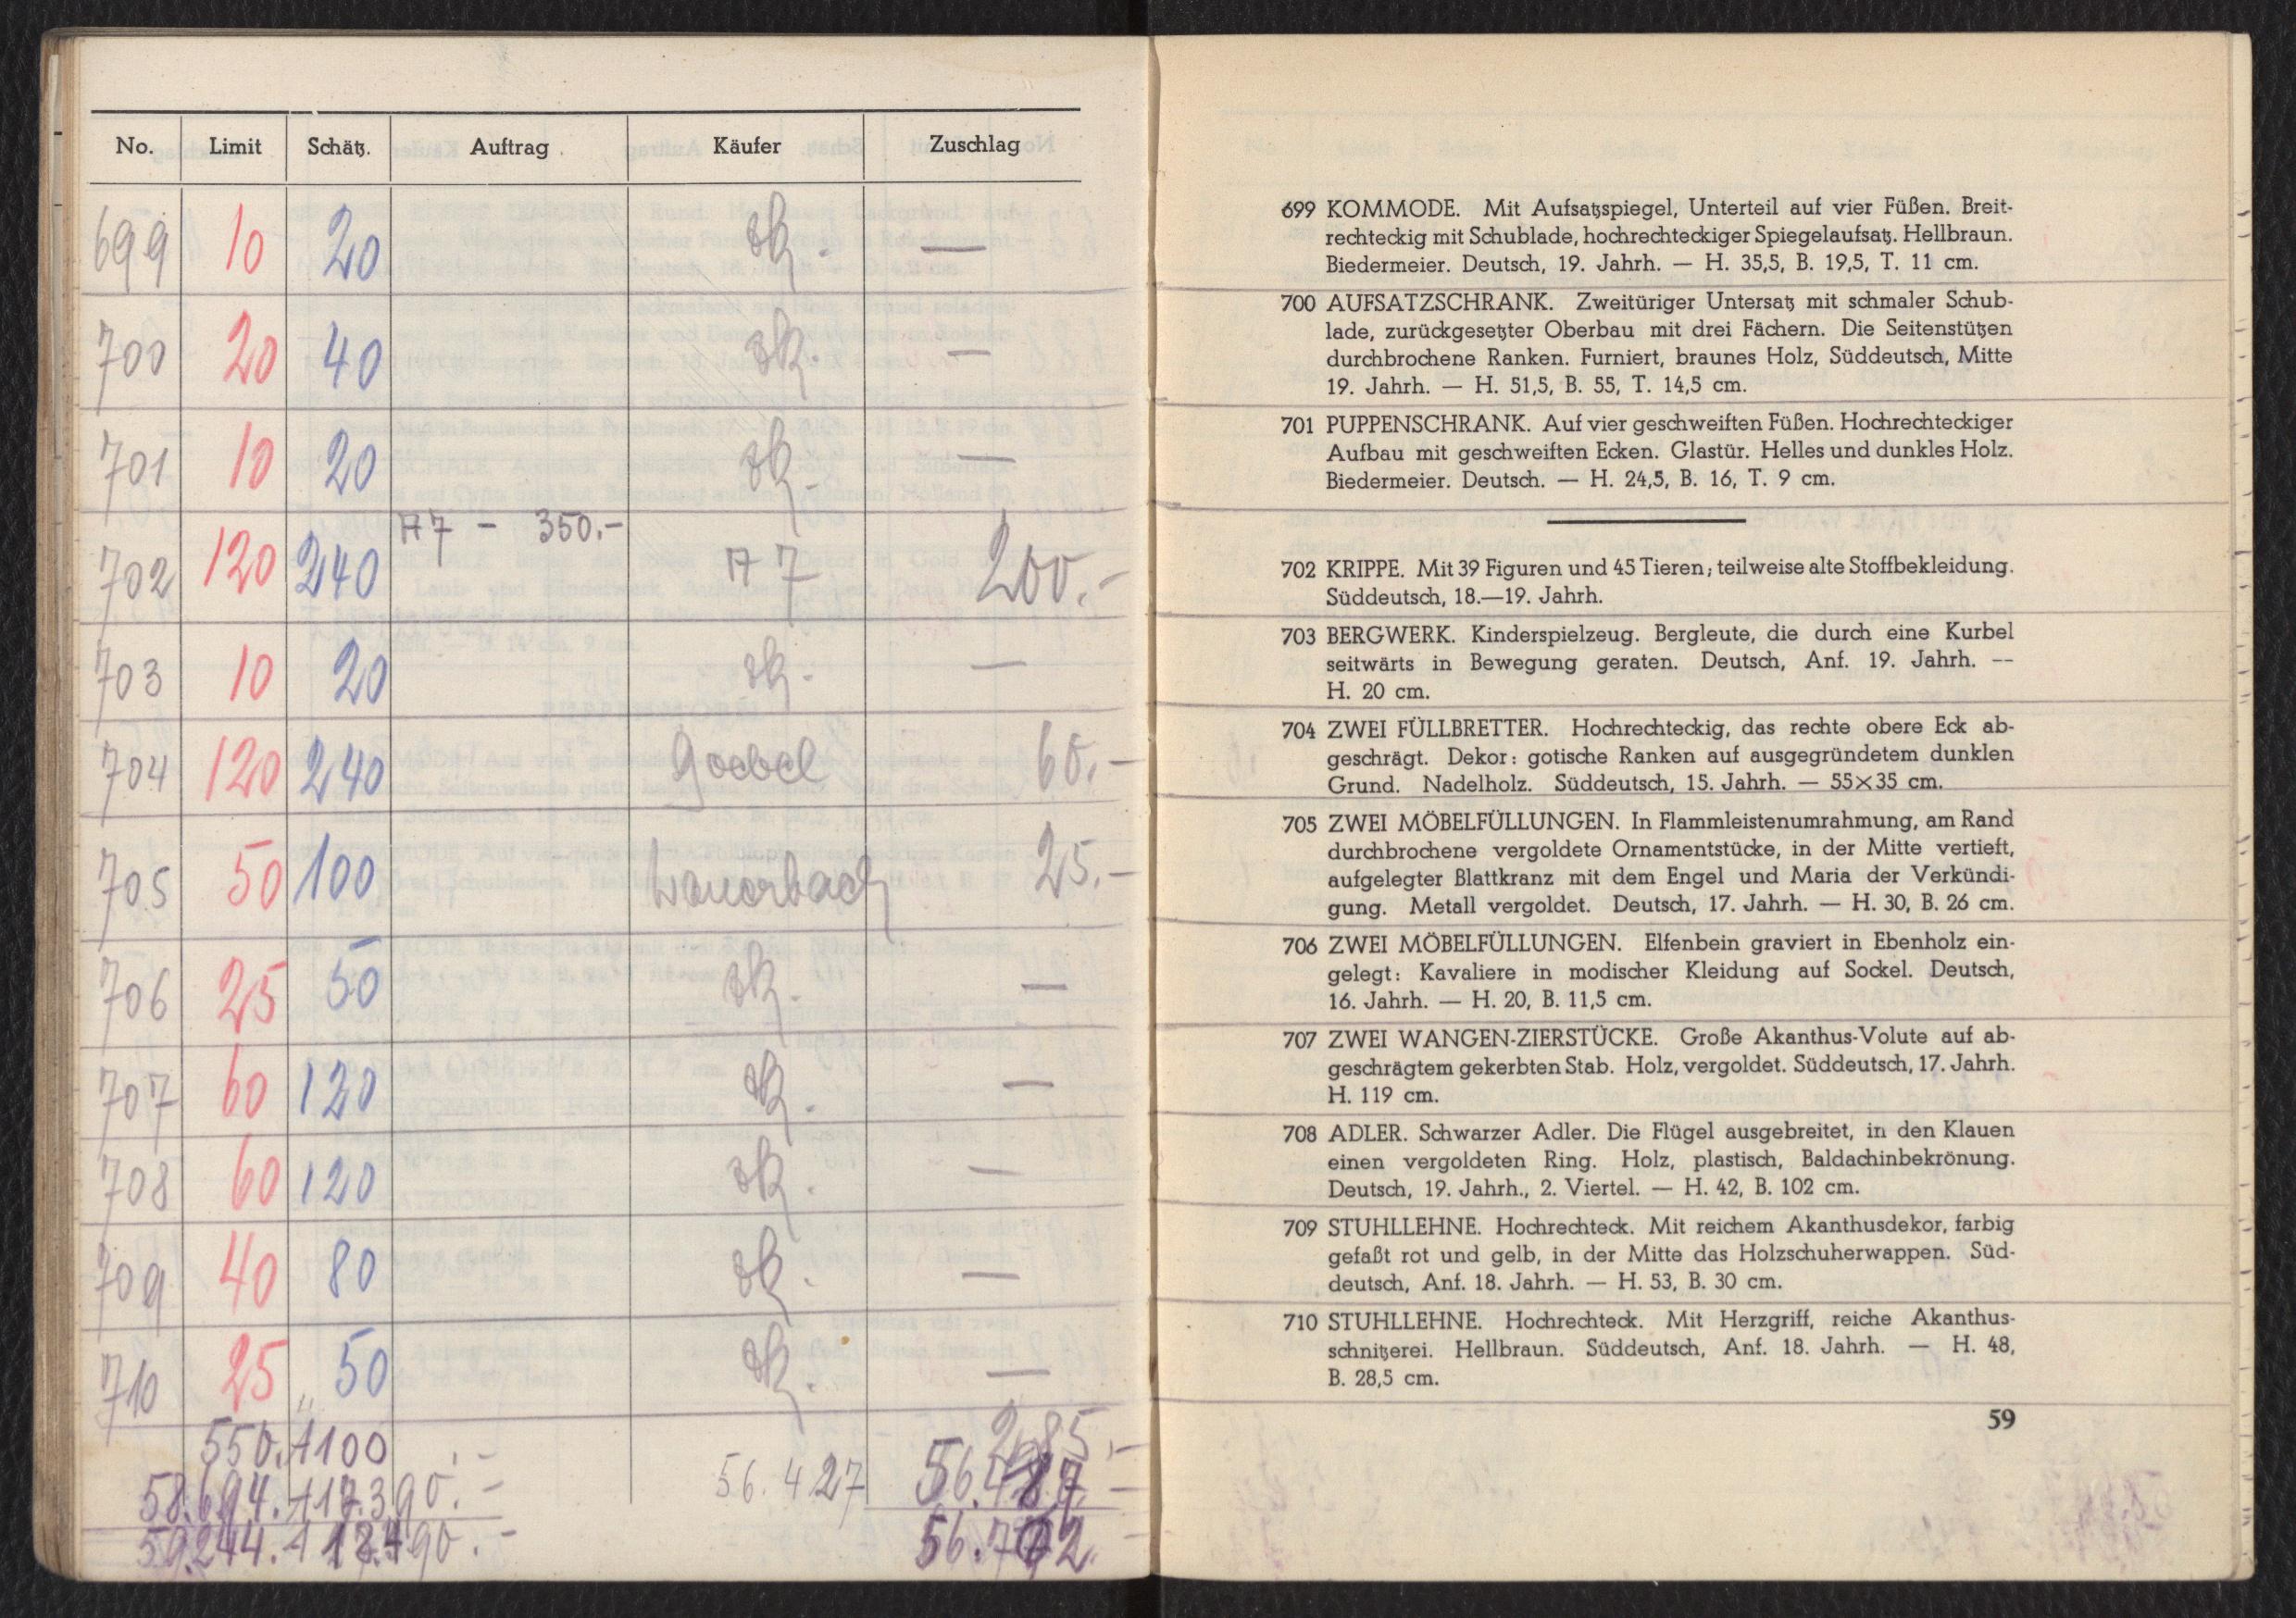 No. Limit Schätz. Auftrag Käufer Zuschlag
699 10 20 —
700 20 40 —
701 10 20 —
A7 - 350.-
702 120 240 A 7 200.-
703 10 20 —
704 120 240 Goebel 60.-
705 50 100 25.-
706 25 50 —
707 60 120 —
708 60 120 —
709 40 80 —
710 25 50 —
550. 1100 .-
56.427
699 KOMMODE. Mit Aufsatzspiegel, Unterteil auf vier Füßen. Breit-
rechteckig mit Schublade, hochrechteckiger Spiegelaufsatz. Hellbraun.
Biedermeier. Deutsch, 19. Jahrh. — H. 35,5, B. 19,5, T. 11 cm.
700 AUFSATZSCHRANK. Zweitüriger Untersatz mit schmaler Schub-
lade, zurückgesetzter Oberbau mit drei Fächern. Die Seitenstützen
durchbrochene Ranken. Furniert, braunes Holz, Süddeutsch, Mitte
19. Jahrh. — H. 51,5, B. 55, T. 14,5 cm.
701 PUPPENSCHRANK. Auf vier geschweiften Füßen. Hochrechteckiger
Aufbau mit geschweiften Ecken. Glastür. Helles und dunkles Holz.
Biedermeier. Deutsch. — H. 24,5, B. 16, T. 9 cm.
702 KRIPPE. Mit 39 Figuren und 45 Tieren; teilweise alte Stoffbekleidung.
Süddeutsch, 18.—19. Jahrh.
703 BERGWERK. Kinderspielzeug. Bergleute, die durch eine Kurbel
seitwärts in Bewegung geraten. Deutsch, Anf. 19. Jahrh. —
H. 20 cm.
704 ZWEI FÜLLBRETTER. Hochrechteckig, das rechte obere Eck ab-
geschrägt. Dekor: gotische Ranken auf ausgegründetem dunklen
Grund. Nadelholz. Süddeutsch, 15. Jahrh. — 55×35 cm.
705 ZWEI MÖBELFÜLLUNGEN. In Flammleistenumrahmung, am Rand
durchbrochene vergoldete Ornamentstücke, in der Mitte vertieft,
aufgelegter Blattkranz mit dem Engel und Maria der Verkündi-
gung. Metall vergoldet. Deutsch, 17. Jahrh. — H. 30, B. 26 cm.
706 ZWEI MÖBELFÜLLUNGEN. Elfenbein graviert in Ebenholz ein-
gelegt: Kavaliere in modischer Kleidung auf Sockel. Deutsch,
16. Jahrh. — H. 20, B. 11,5 cm.
707 ZWEI WANGEN-ZIERSTÜCKE. Große Akanthus-Volute auf ab-
geschrägtem gekerbten Stab. Holz, vergoldet. Süddeutsch, 17. Jahrh.
H. 119 cm.
708 ADLER. Schwarzer Adler. Die Flügel ausgebreitet, in den Klauen
einen vergoldeten Ring. Holz, plastisch, Baldachinbekrönung.
Deutsch, 19. Jahrh., 2. Viertel. — H. 42, B. 102 cm.
709 STUHLLEHNE. Hochrechteck. Mit reichem Akanthusdekor, farbig
gefaßt rot und gelb, in der Mitte das Holzschuherwappen. Süd-
deutsch, Anf. 18. Jahrh. — H. 53, B. 30 cm.
710 STUHLLEHNE. Hochrechteck. Mit Herzgriff, reiche Akanthus-
schnitzerei. Hellbraun. Süddeutsch, Anf. 18. Jahrh. — H. 48,
B. 28,5 cm.
59